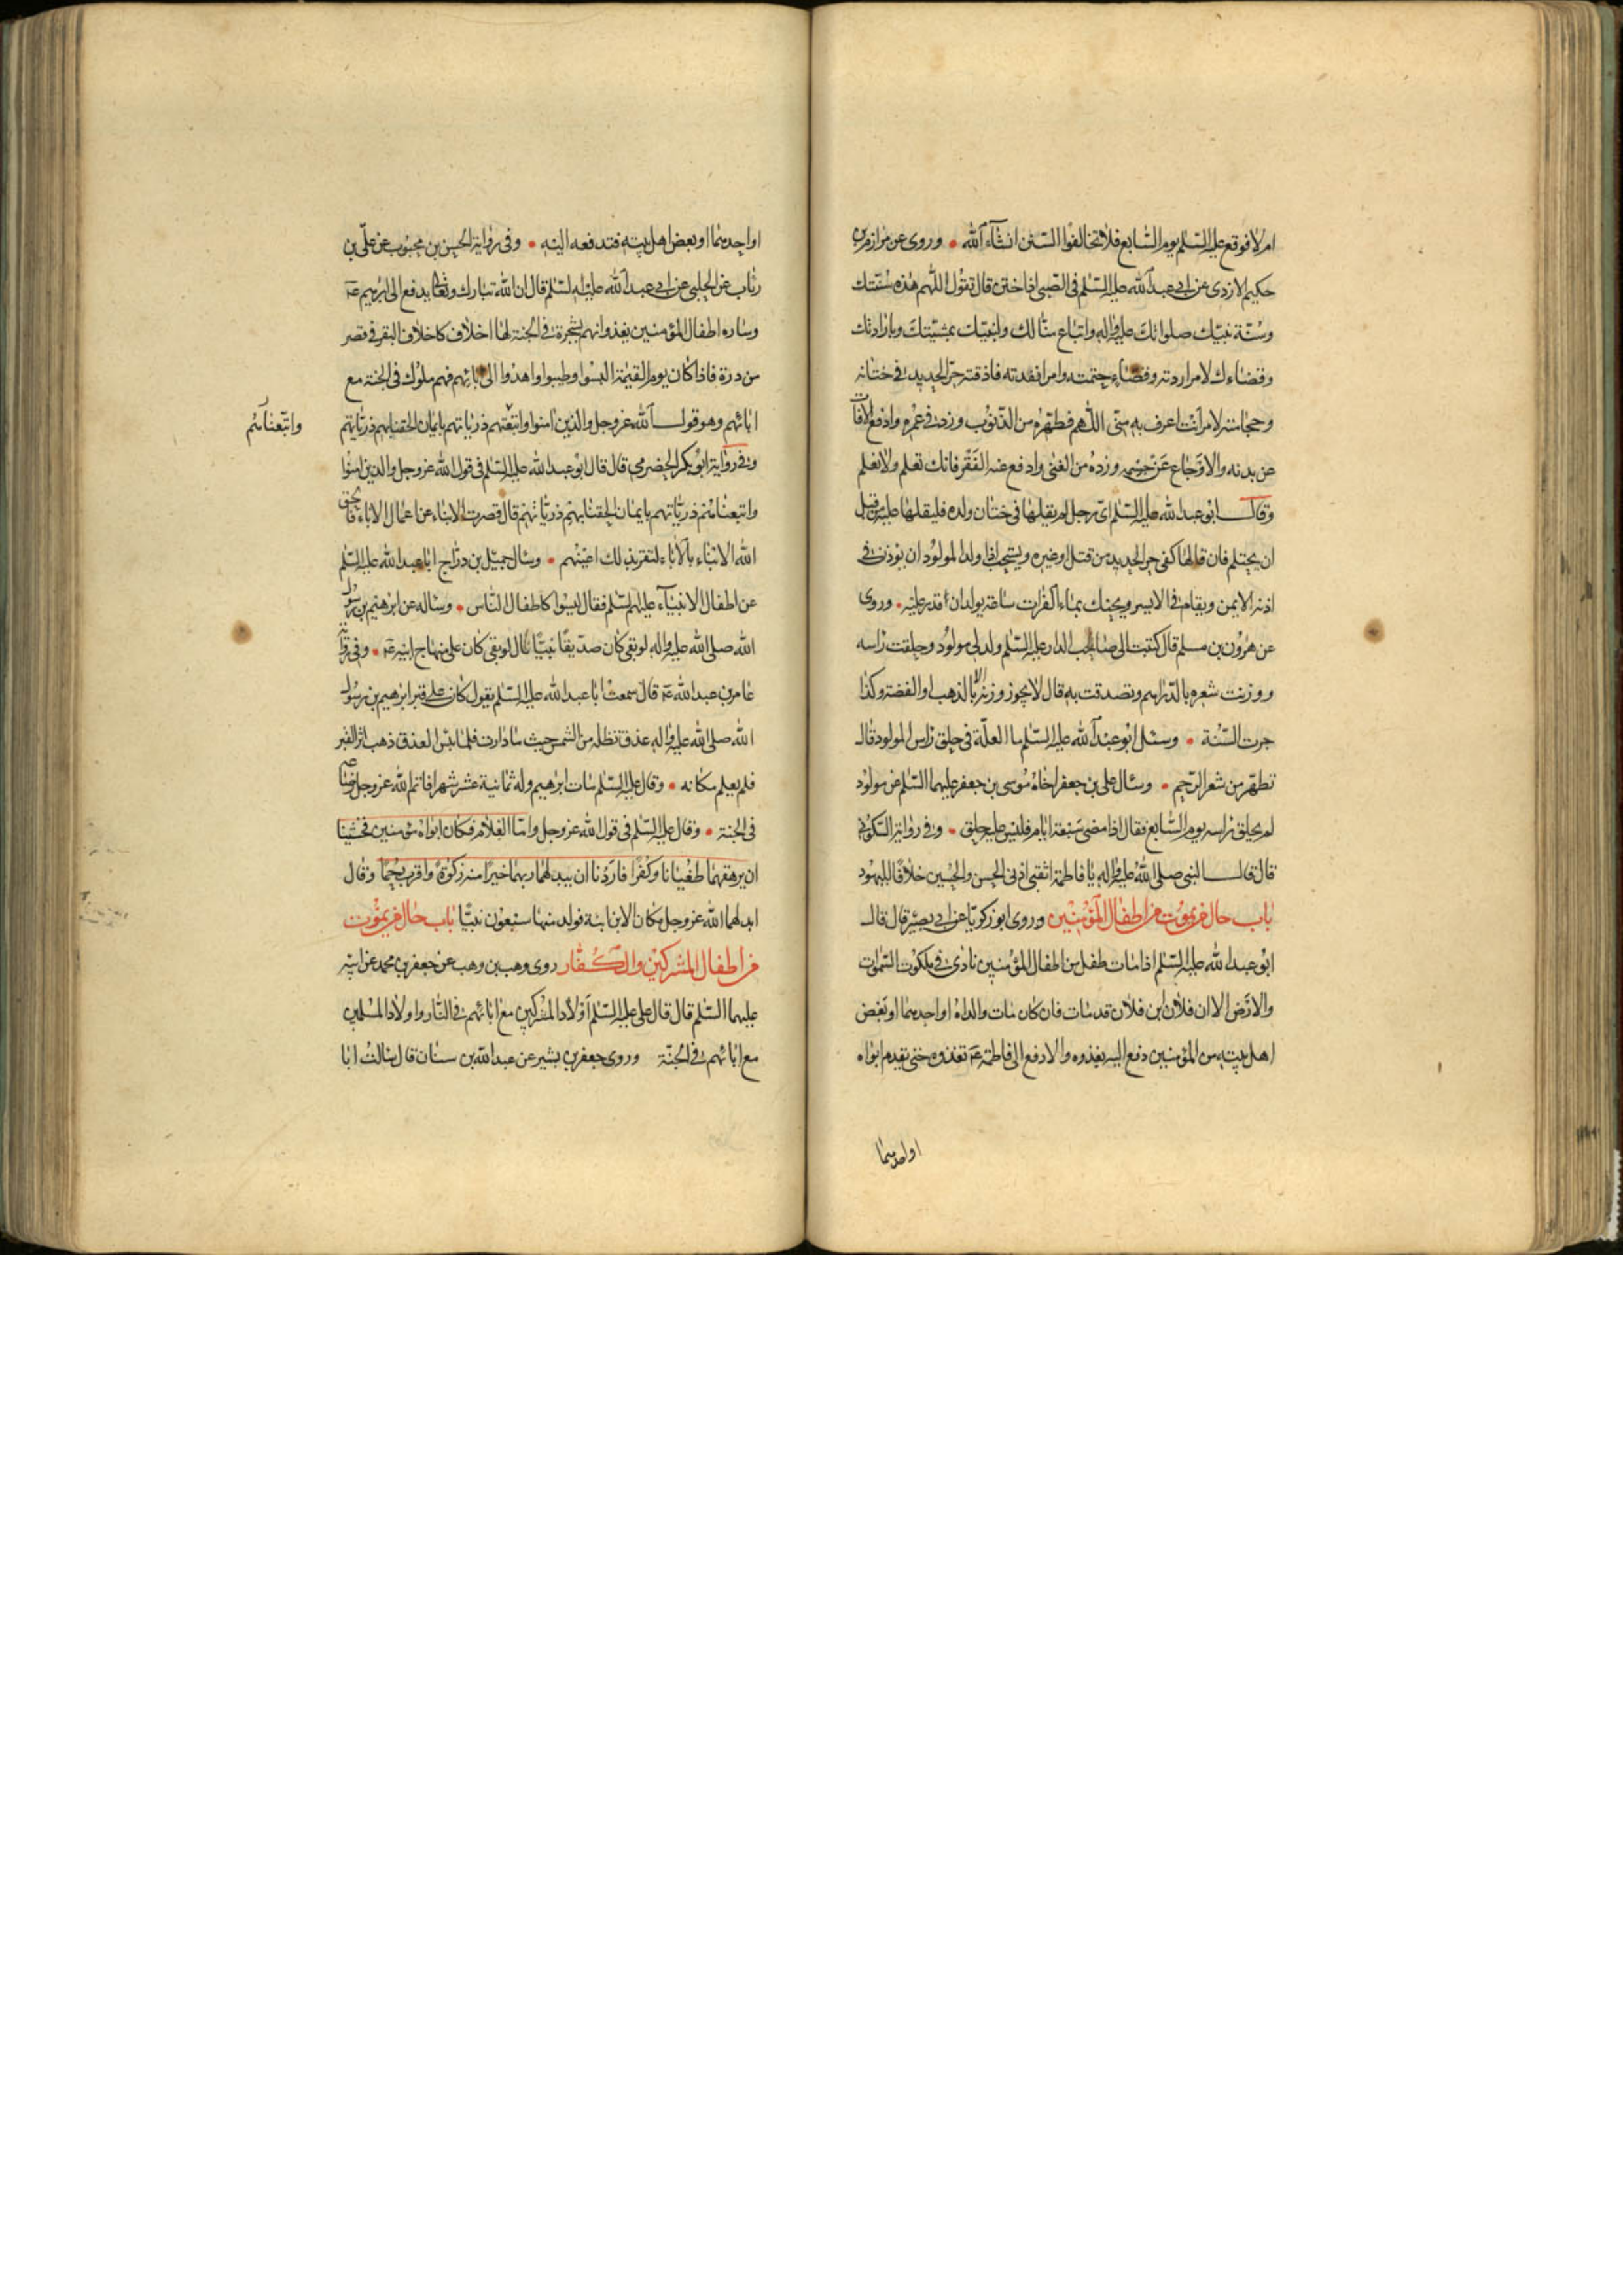 ام لا فوقع عليه السّلم يوم السّابع فلا تخالفوا السّنن انشآء الله • وروى عن مرازم بن
حكيم الازدى عن ابى عبد الله عليه السّلم فى الصّبى اذا ختن قال تقول اللّهم هذه سُنّتك
وسُنّة نبيّك صلواتك عليه واله واتباع منّا لك ولنبيّك بمشيّتك وبارادتك
وقضاءك لامر اردته وقضاء حتمته وامر انفذته فاذقته حرّ الحديد فى ختانه
وحجامته لامر انت اعرف به منّى اللّهم فطهّره من الذّنوب وزد فى عمره وادفع الافات
عن بدنه والاوجاع عن جسمه وزده من الغنى وادفع عنه الفقر فانك تعلم ولا نعلم
وقال ابو عبد الله عليه السّلم اىّ رجل لم يقلها فى ختان ولده فليقلها عليه من قبل
ان يحتلم فان قالها كفى حرّ الحديد من قتل او غيره ويستحب اذا ولد المولود ان يؤذن فى
اذنه الايمن ويقام فى الايسر ويحنك بماء الفرات ساعة يولد ان قدر عليه • وروى
عن هرون بن مسلم قال كتبت الى صاحب الدار عليه السّلم ولد لى مولود وحلقت راسه
ووزنت شعره بالدّراهم وتصدقت به قال لا يجوز وزنه الّا بالذهب او الفضة وكذا
جرت السّنة • وسئل ابو عبد الله عليه السّلم ما العلّة فى حلق راس المولود قال
تطهيره من شعر الرّحم • وسال على بن جعفر اخاه موسى بن جعفر عليهما السّلم عن مولود
لم يحلق راسه يوم السّابع فقال اذا مضى سبعة ايام فليس عليه حلق • وفى رواية السّكونى
قال قال النبى صلى الله عليه واله يا فاطمة اثقبى اذنى الحسن والحسين خلافا لليهود
باب حال من يموت من اطفال المؤمنين وروى ابو زكريّا عن ابى بصير قال قال
ابو عبد الله عليه السّلم اذا مات طفل من اطفال المؤمنين نادى فى ملكوت السّموات
والارض الا ان فلان ابن فلان قد مات فان كان مات والداه او احدهما او بعض
اهل بيته من المؤمنين دفع اليه يغذوه والا دفع الى فاطمة ع تغذوه حتى يقدم ابواه
او احدهما
او احدهما او بعض اهل بيته فتدفعه اليه • وفى رواية الحسن بن محبوب عن علىّ بن
رئاب عن الحلبى عن ابى عبد الله عليه السّلم قال ان الله تبارك وتعالى يدفع الى ابرهيم ع
وساره اطفال المؤمنين يغذوانهم بشجرة فى الجنة لها اخلاف كاخلاف البقر فى قصر
من درة فاذا كان يوم القيمة البسوا وطيبوا واهدوا الى ابائهم فهم ملوك فى الجنة مع
ابائهم وهو قول الله عز وجل والذين امنوا واتبعتهم ذرياتهم بايمان الحقنا بهم ذرّياتهم
واتّبعناهُم
وفى رواية ابو بكر الحضرمى قال قال ابو عبد الله عليه السّلم فى قول الله عز وجل والذين امنوا
واتبعناهم ذريّاتهم بايمان الحقنا بهم ذريّاتهم قال قصرت الابناء عن اعمال الاباء فالحق
الله الابناء بالاباء لتقر بذلك اعينهم • وسال جميل بن درّاج ابا عبد الله عليه السّلم
عن اطفال الانبيآء عليهم السّلم فقال ليسوا كاطفال النّاس • وساله عن ابرهيم بن رسول
الله صلى الله عليه واله لو بقى كان صدّيقا نبيّا قال لو بقى كان على منهاج ابيه ع • وفى رواية
عامر بن عبد الله ع قال سمعت ابا عبد الله عليه السّلم يقول كان على قبر ابرهيم بن رسول
الله صلى الله عليه واله عذق تظله من الشمس حيث ما دارت فلما يبس العذق ذهب اثر القبر
فلم يعلم مكانه • وقال عليه السّلم مات ابرهيم وله ثمانية عشر شهرا فاتم الله عز وجل رضاعه
فى الجنة • وقال عليه السّلم فى قول الله عز وجل وامّا الغلام فكان ابواه مؤمنين فخشينا
ان يرهقهما طغيانا وكفرا فاردنا ان يبدلهما ربهما خيرا منه زكوة واقرب رحما وقال
ابدلهما الله عز وجل مكان الابن ابنة فولد منها سبعون نبيّا باب حال من يموت
من اطفال المشركين والكفّار روى وهب بن وهب عن جعفر بن محمد عن ابيه
عليهما السّلم قال قال على عليه السّلم اولاد المشركين مع ابائهم فى النّار واولاد المسلمين
مع ابائهم فى الجنّة وروى جعفر بن بشير عن عبد الله بن سنان قال سالت ابا